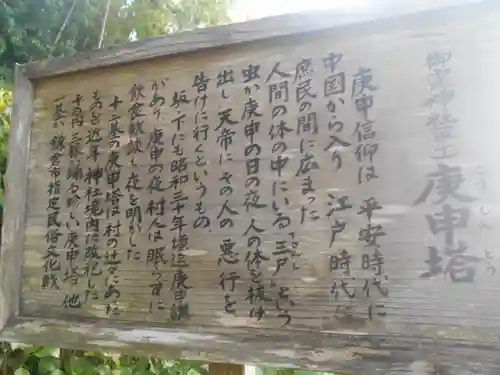 御霊神社 庚申塔
こうしん とう
庚申信仰は 平安時代に
中国から入り 江戸時代
庶民の間に広まった
人間の体の中にいる「三尸」という
虫が庚申の日の夜 人の体を抜け
出し 天帝にその人の 悪行を
告げに行くというもの
坂ノ下にも昭和三十年頃迄庚申講
があり 庚申の夜 村人は眠らずに
飲食歓談し夜を明かした
十二基の庚申塔は村の辻々にあった
ものを近年 神社境内に改祀した
その内 三猿が踊る珍しい庚申塔 他
一基が 鎌倉市指定民俗文化財